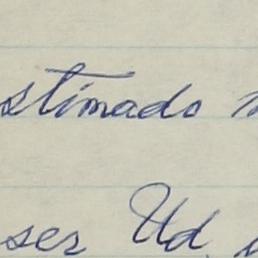 stimado
ser Ud